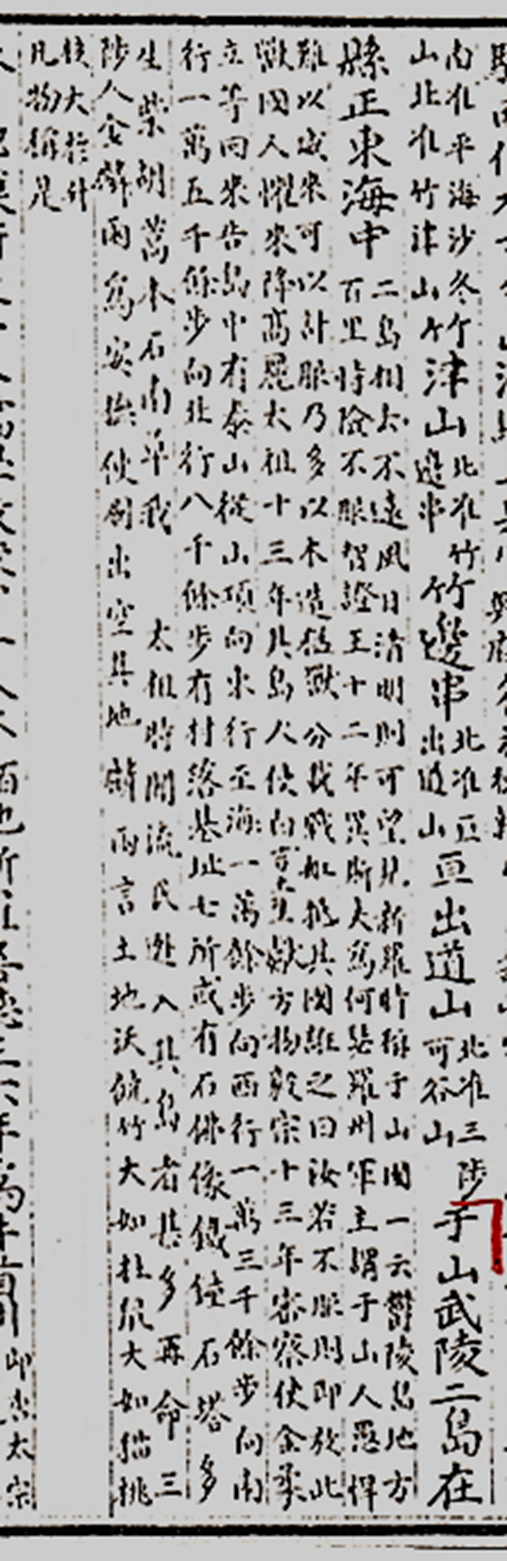 南准平海沙冬竹
山北准竹津山
竹津山
北准竹
邊串
竹邊串
北准亘
出道山
亘出道山
北准三陟
可谷山
于山武陵二島在
縣正東海中
二島相去不遠風日清明則可望見新羅時稱于山國一云鬱陵島地方
百里恃險不服智證王十二年異斯夫爲何瑟羅州軍主謂于山人愚悍
難以威來可以計服乃多以木造猛獸分載戰船抵其國誑之曰汝若不服則即放此
獸國人懼來降高麗太祖十三年其島人使白吉土豆獻方物毅宗十三年審察使金柔
立等回來告島中有泰山從山頂向東行至海一萬餘步向西行一萬三千餘步向南
行一萬五千餘步向北行八千餘步有村落基址七所或有石佛像鐵鍾石塔多
生柴胡蒿本石南草我 太祖時聞流民逃入其島者甚多再命三
陟人金麟雨爲安撫使刷出空其地麟雨言土地沃饒竹大如柱鼠大如猫桃
核大於升
凡物稱是